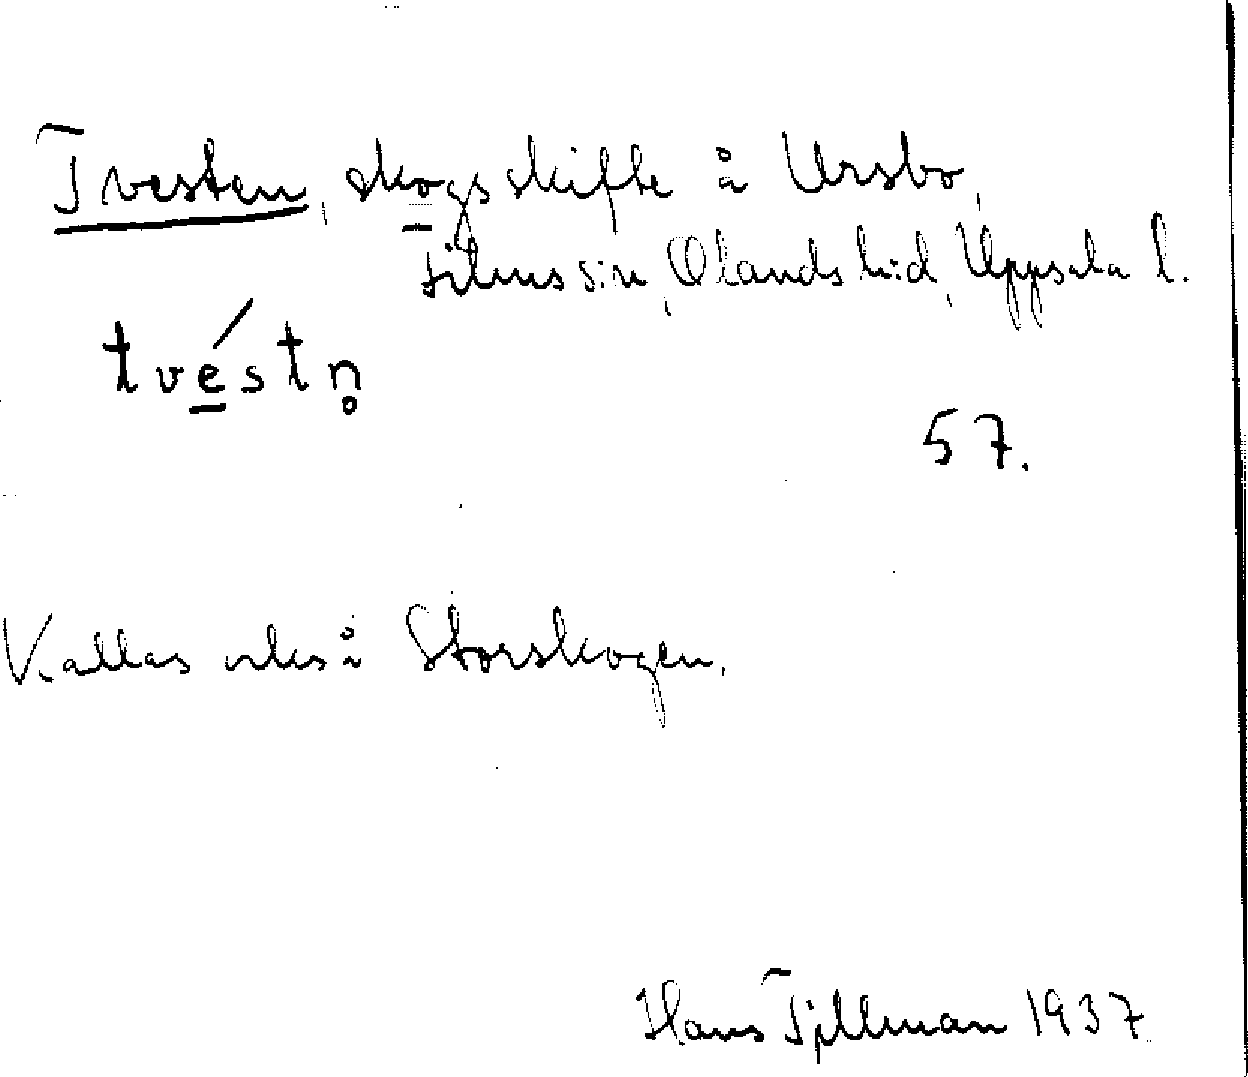 Tvesten, skogsskifte å Ursbo,
Films s:n, Olands h:d, Uppsala l.
tvéstn̥
57.
Kallas också Storskogen.
Hans Tillman 1937